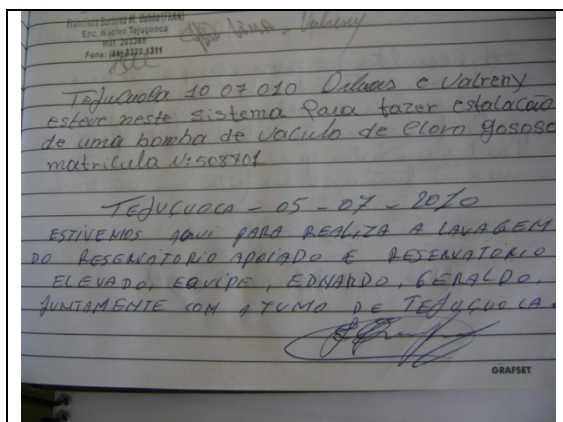 Francisco Barbosa M. Uchôa (FRAN)
Enc. Núcleo Tejuçuoca
Mat. 203366
Fone: 3323.1311
Lima - Valreny
Tejuçuoca 10 07 010 e Valreny
esteve neste sistema para fazer estalacão
de uma bomba de vaculo de Cloro gososo
matricula N: 508701
TEJUÇUOCA - 05 - 07 - 2010
ESTIVEMOS AQUI PARA REALIZA A LAVAGEM
DO RESERVATORIO APOIADO E RESERVATÓRIO
ELEVADO, EQUIPE, EDNARDO, GERALDO,
JUNTAMENTE COM ATUMO DE TEJUÇUOCA.
GRAFSET